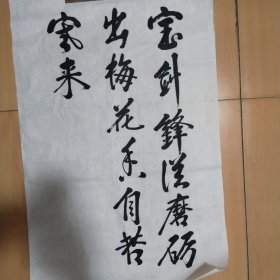 宝剑鋒從磨砺
出梅花香自苦
寒来